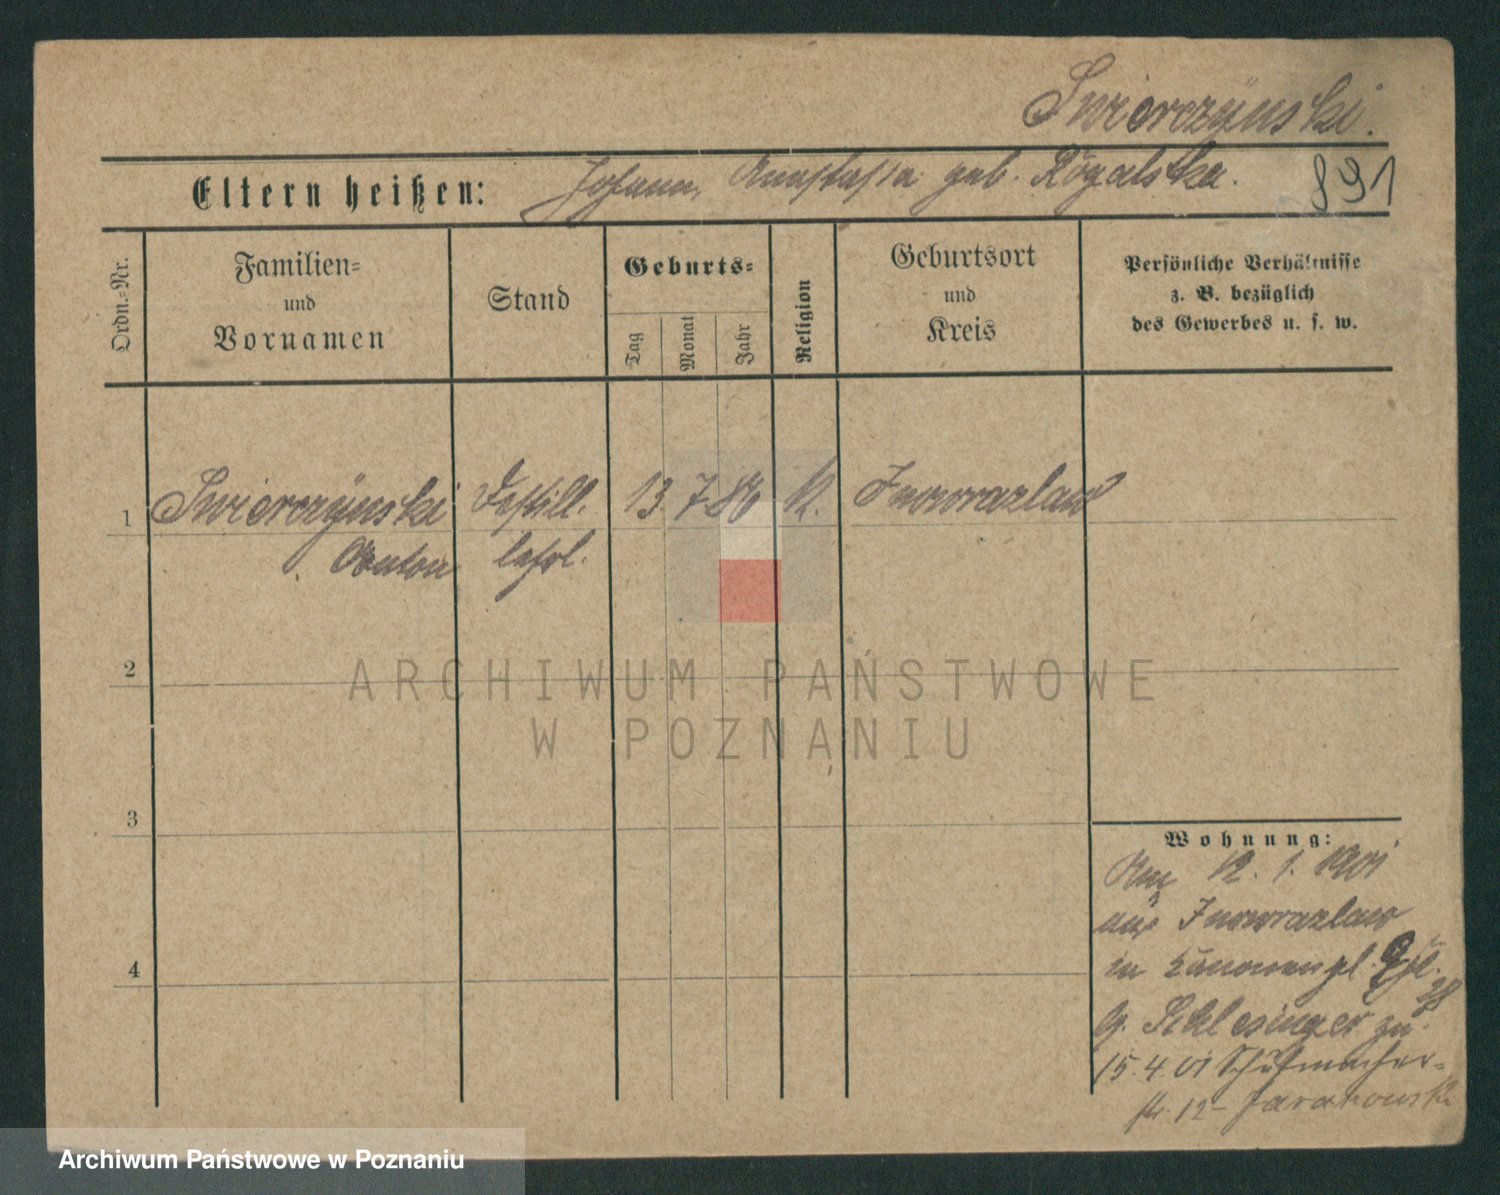 Swierczÿnski.
Eltern heißen: Johann, Annastasia geb. Rogalska. 891
Ordn.=Nr.
Familien=
und
Vornamen
Stand
Geburts=
Tag
Monat
Jahr
Religion
Geburtsort
und
Kreis
Persönliche Verhältnisse
z. B. bezüglich
des Gewerbes u. s. w.
1 Swierczÿnski Destill. 13 7 86 K. Inowrazlaw
Anton lehrl.
2
3
4
Wohnung:
Am 12. 1. 1901
aus Inowrazlaw
in
28
G. Schlesinger zu.
15. 4. 01 Schuhmacher=
str 12 - Jarakowski
ARCHIWUM PAŃSTWOWE
W POZNANIU
Archiwum Państwowe w Poznaniu